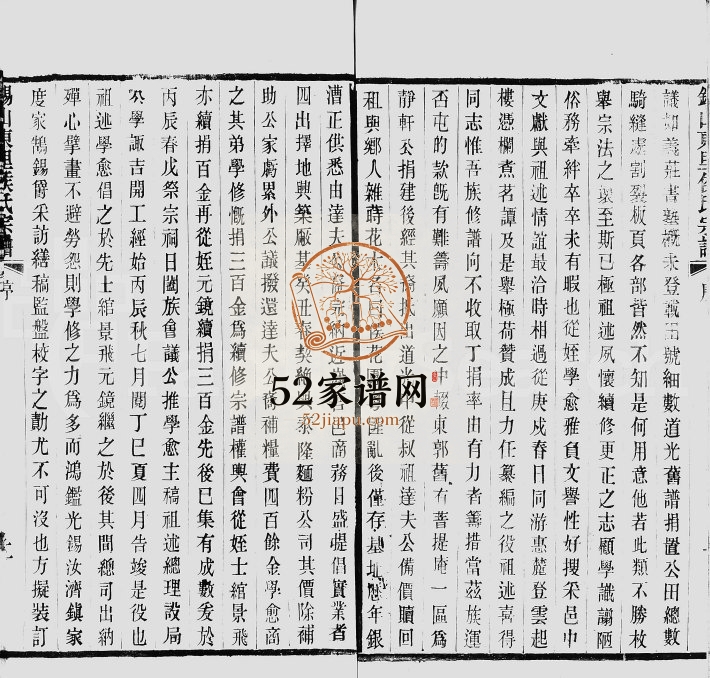 議如義莊書塾概未登載田號細數道光舊譜捐置公田總數
騎縫虛割裂板頁各部皆然不知是何用意他若此類不勝枚
舉宗法之壞至斯已極祖述夙懷續修更正之志顧學識譾陋
俗務牽絆卒卒未有暇也從姪學愈雅負文譽性好搜采邑中
文獻與祖述情誼最洽時相過從庚戌春日同游惠麓登雲起
樓憑欄煮茗譚及是舉極荷贊成且力任纂編之役祖述喜得
同志惟吾族修譜向不收取丁捐率由有力者籌措當茲族運
否屯的款旣有難籌風願因之中輟東郭舊有菩提庵一區爲
靜軒公捐建後經其裔 出道光 從叔祖達夫公備價贖回
租與鄉人雜蒔花木 亂後僅存基址 年銀
漕正供悉由達夫 邑商務日盛提倡實業者
四出擇地興築廠基癸丑 泰隆麵粉公司其價除補
助公家虧累外公議撥還達夫公裔補糧費四百餘金學愈商
之其弟學修慨捐三百金爲續修宗譜權輿會從姪士綰景飛
亦續捐百金再從姪元鏡續捐三百金先後已集有成數爰於
丙辰春戊祭宗祠日闔族會議公推學愈主稿祖述總理設局
公學諏吉開工經始丙辰秋七月閱丁巳夏四月告竣是役也
祖述學愈倡之於先士綰景飛元鏡繼之於後其間總司出納
殫心擘畫不避勞怨則學修之力爲多而鴻鑑光錫汝濟鎮家
度家鵠錫爵采訪繕稿監盤校字之勩尤不可沒也方擬裝訂
錫山東里侯氏宗譜
序
52家谱网
52jiapu.com